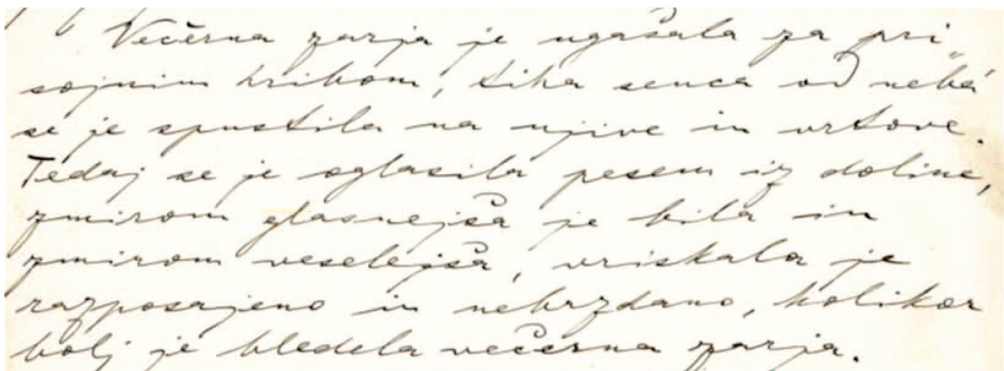 Večerna zarja je ugašala za pri
sojnim hribom, tiha senca od nebá
se je spustila na njive in vrtove.
Tedaj se je oglasila pesem iz doline,
zmirom glasnejša je bila in
zmirom veselejša, vriskala je
razposajeno in nebrzdano, kolikor
bolj je bledela večerna zarja.